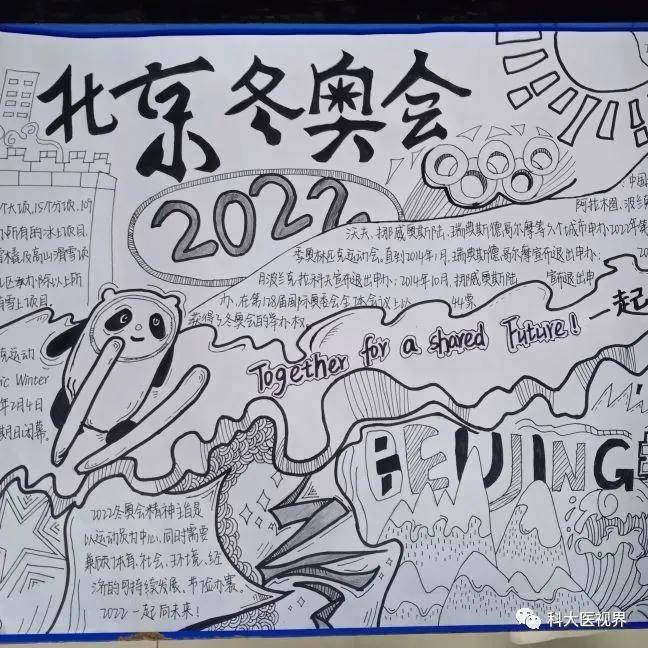 北京冬奥会
2022
中国
个大项,15个分项,109
办所有的冰上项目,
雪橇及高山滑雪项
口区承办除以上所
有雪上项目。
阿拉木图、波兰
沃夫、挪威奥斯陆、瑞典斯德哥尔摩等八个城市申办2022年第
季奥林匹克运动会。直到2014年1月,瑞典斯德哥尔摩宣布退出申办;
月波兰克拉科夫宣布退出申办;2014年10月,挪威奥斯陆 宣布退出申
办,在第128届国际奥委会全体会议上以 44票
获得了冬奥会的举办权。
一起
Together for a shared Future!
运动
ic Winter
年2月4日
期日闭幕。
BEIJING
2022冬奥会精神主旨是
以运动员为中心,同时需要
兼顾体育、社会、环境、经
济的可持续发展、节俭办赛。
2022一起向未来!
科大医视界